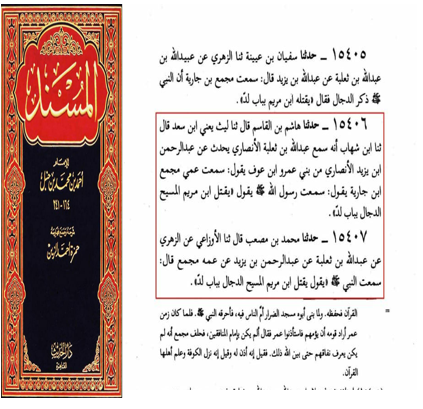 المسند
للإمام
أحمد بن محمد بن حنبل
١٦٤ - ٢٤١
حمزة أحمد الزين
دار الحديث
القاهرة
١٥٤٠٥ ــ حدثنا سفيان بن عيينة ثنا الزهري عن عبيدالله بن
عبدالله بن ثعلبة عن عبدالله بن يزيد قال: سمعت مجمع بن جارية أن النبي
ﷺ ذكر الدجال فقال «يقتله ابن مريم بباب لدّ».
١٥٤٠٦ ــ حدثنا هاشم بن القاسم قال ثنا ليث يعني ابن سعد قال
ثنا ابن شهاب أنه سمع عبدالله بن ثعلبة الأنصاري يحدث عن عبدالرحمن
ابن يزيد الأنصاري من بني عمرو ابن عوف يقول: سمعت عمي مجمع
ابن جارية يقول: سمعت رسول الله ﷺ يقول «يقتل ابن مريم المسيح
الدجال بباب لدّ».
١٥٤٠٧ ــ حدثنا محمد بن مصعب قال ثنا الأوزاعي عن الزهري
عن عبدالله بن ثعلبة عن عبدالرحمن بن يزيد عن عمه مجمع قال:
سمعت النبي ﷺ «يقول يقتل ابن مريم المسيح الدجال بباب لدّ».
القرآن فحفظه. ولما بنى أبوه مسجد الضرار أمّ الناس فيه، فأحرقه النبي ﷺ. فلما كان زمن
عمر أراد قومه أن يؤمهم فاستأذنوا عمر فقال ألم يكن بإمام المنافقين، فحلف مجمع أنه لم
يكن يعرف نفاقهم حتى بين الله ذلك. فقيل إنه أذن له وقيل إنه نزل الكوفة وعلم أهلها
القرآن.